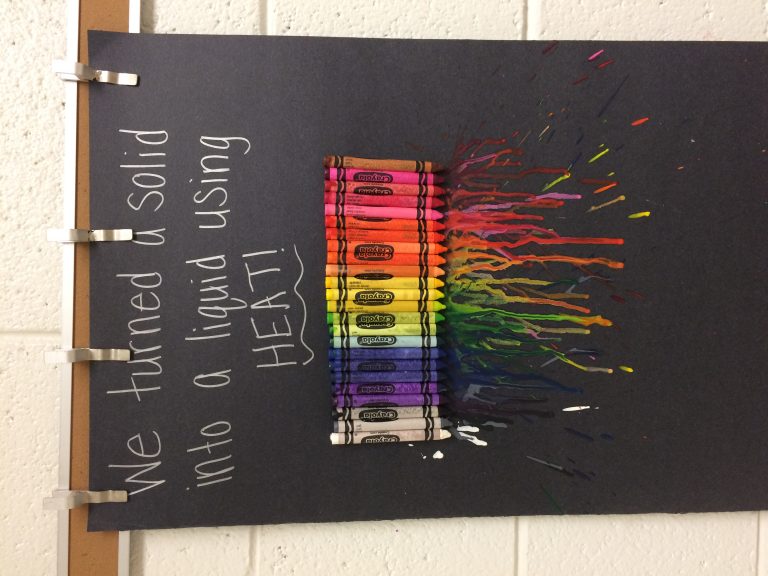 We turned a solid
into a liquid using
HEAT!
Crayola
Crayola
Crayola
Crayola
Crayola
Crayola
Crayola
Crayola
Crayola
Crayola